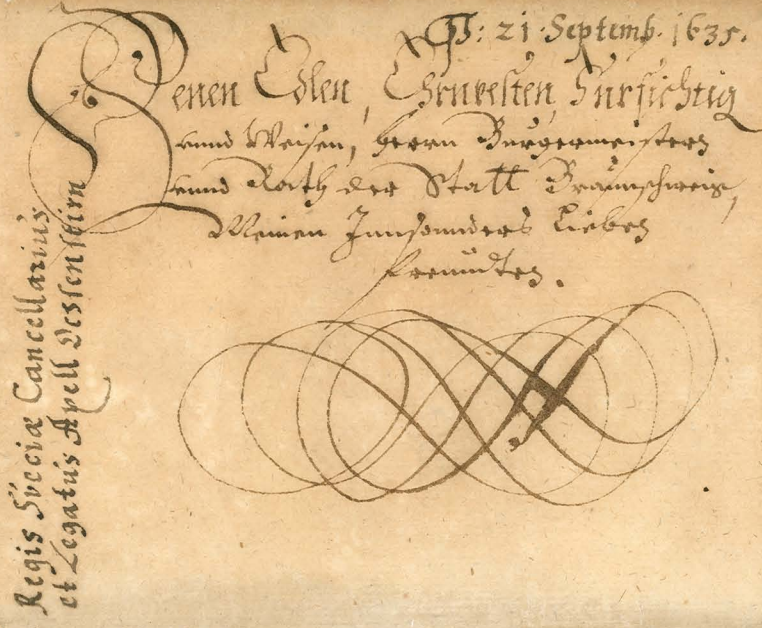 Pſ: 21 Septemb. 1635.
Denen Edlen, Ehrnvesten, Fürsichtig
vnnd Weisen, Herrn Bürgermeistern
vnnd Rath der Statt Braunschweig,
Meinen Innsonnders Lieben
Freundten.
Regis Sveciæ Cancellarius
et Legatus Axell Oxsenstirn